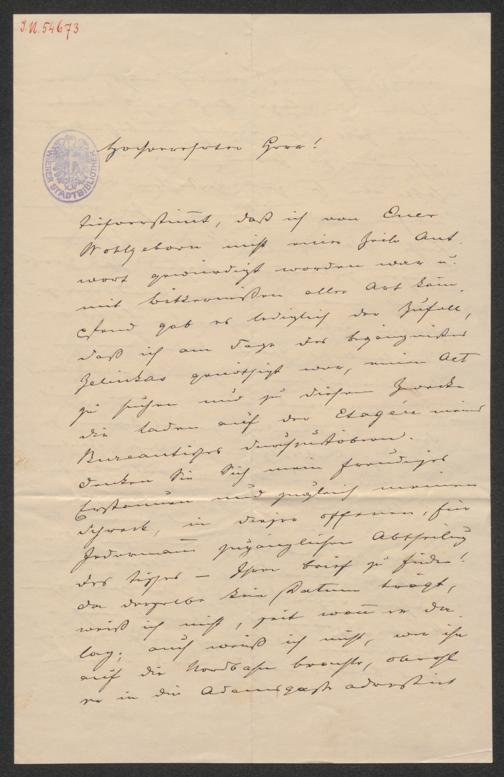 J.N. 54673
WIENER STADTBIBLIOTHEK
Hochverehrter Herr!
Tiefverstimt, daß ich von Euer
Wohlgeborn nicht einer Zeile Ant-
wort gewürdigt worden war u.
mit Bitternißen aller Art käm-
pfend gab es lediglich der Zufall,
daß ich am Tage des Begängnißes
Zelinkas genöthigt war, einen Act
zu suchen und zu diesem Zwecke
die Laden auf der Etagère meines
Bureautisches durchzustöbern.
Denken Sie Sich mein freudiges
Erstaunen und zugleich meinen
Schreck, in dieser offenen, für
Jedermann zugänglichen Abtheilung
des Tisches – Ihren Brief zu finden!
Da derselbe kein Datum trägt,
weiß ich nicht, seit wann er da
lag; auch weiß ich nicht, wer ihn
auf die Nordbahn brachte, obwohl
er in die Adamsgasse adressirt